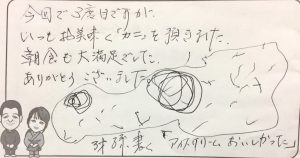 今回で3度目ですが、
いつも美味しく「カニ」を頂きました。
朝食も大満足でした。
ありがとうございました。
3才 詩書く 「アイスクリーム おいしかった」